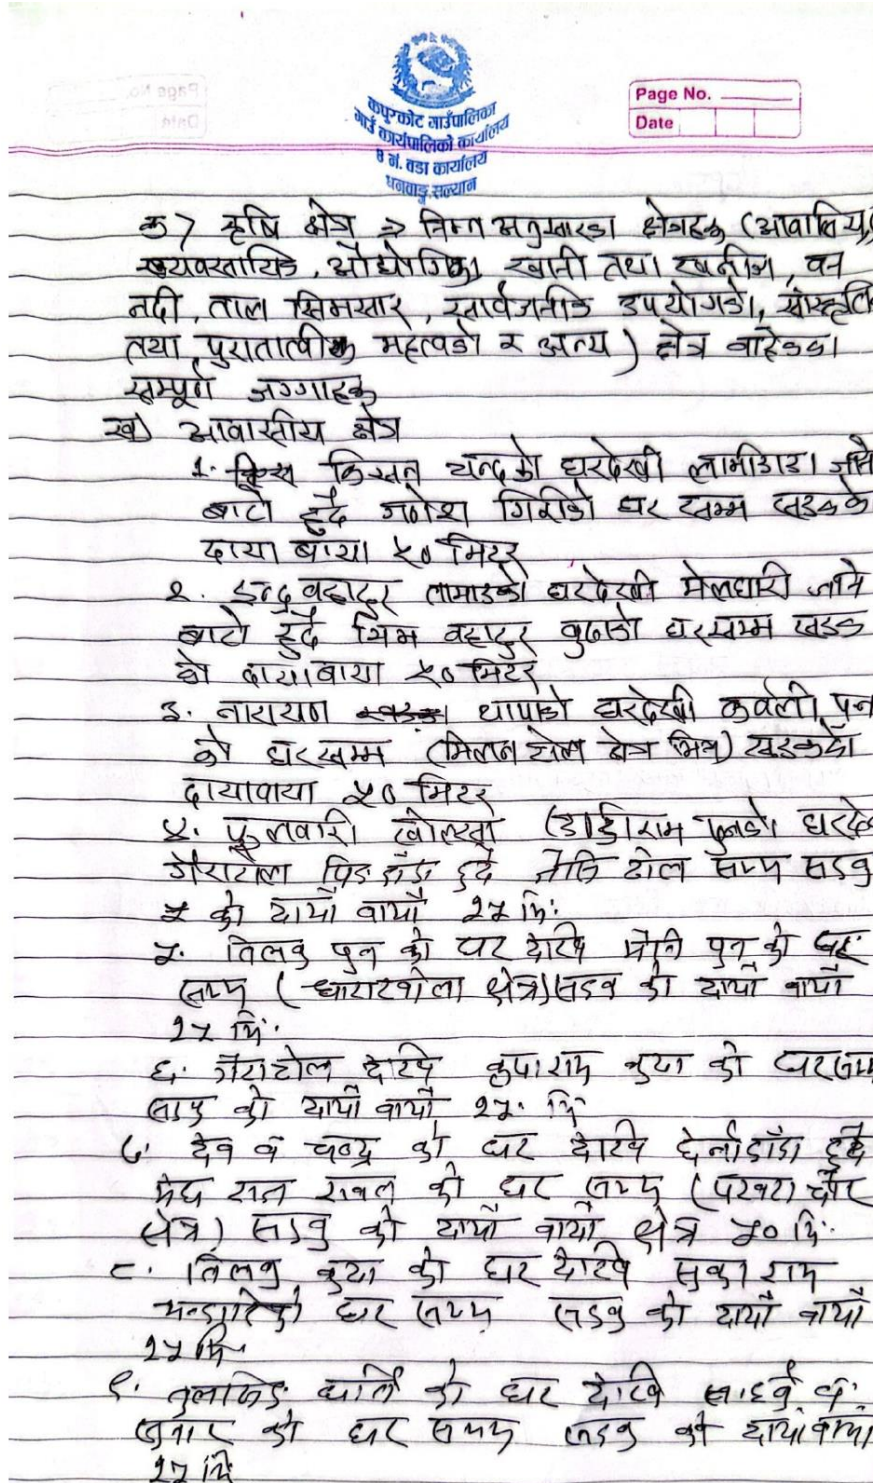 Page No.
Date
कपुरकोट गाउँपालिका
गाउँ कार्यपालिकाको कार्यालय
४ नं. वडा कार्यालय
धनवाङ्ग, सल्यान
क) कृषि क्षेत्र → निम्न अनुसारका क्षेत्रहरू (आवासिय,
व्यवसायिक, औद्योगिक, खानी तथा खनीज, वन
नदी, ताल सिमसार, सार्वजनीक उपयोगको, सांस्कृति
तथा पुरातात्वीक महत्वको र अन्य) क्षेत्र बाहेकका
सम्पूर्ण जग्गाहरू
ख) आवासीय क्षेत्र
१. किसन चन्दको घरदेखी लामीडाडा जाने
बाटो हुदै गणेश गिरीको घर सम्म सडकके
दाया बाया ५० मिटर
२. इन्द्र बहादुर तामाङको घरदेखी मेलधारी जाने
बाटो हुदै भिम बहादुर बुढाको घरसम्म सडक
को दायाबाया ५० मिटर
३. नारायण थापाको घरदेखी कवेली पुन
को घरसम्म (मिलन टोल क्षेत्र भित्र) सडकको
दायावाया ५० मिटर
४. फुलवारी खोल्सा पुनको घरदे
गैराटोल हुदै टोल सम्म सडक
को दायाँ वायाँ २५ मि.
५. तिलक पुन को घर देखि पुन को घर
सम्म (धाराखोला क्षेत्र) सडक को दायाँ वायाँ
२५ मि.
६. गैराटोल देखि को घर सम्म
सडक को दायाँ वायाँ २५. मि
७. देव व चन्द्र को घर देखि डाँडा हुदै
रावल को घर सम्म
क्षेत्र) सडक को दायाँ वायाँ क्षेत्र ५० मि.
८. तिलक को घर देखि राम
को घर सम्म सडक को दायाँ वायाँ
२५ मि.
९. घर्ति को घर देखि
सुनार को घर सम्म सडक को दायाँ वायाँ
२५ मि